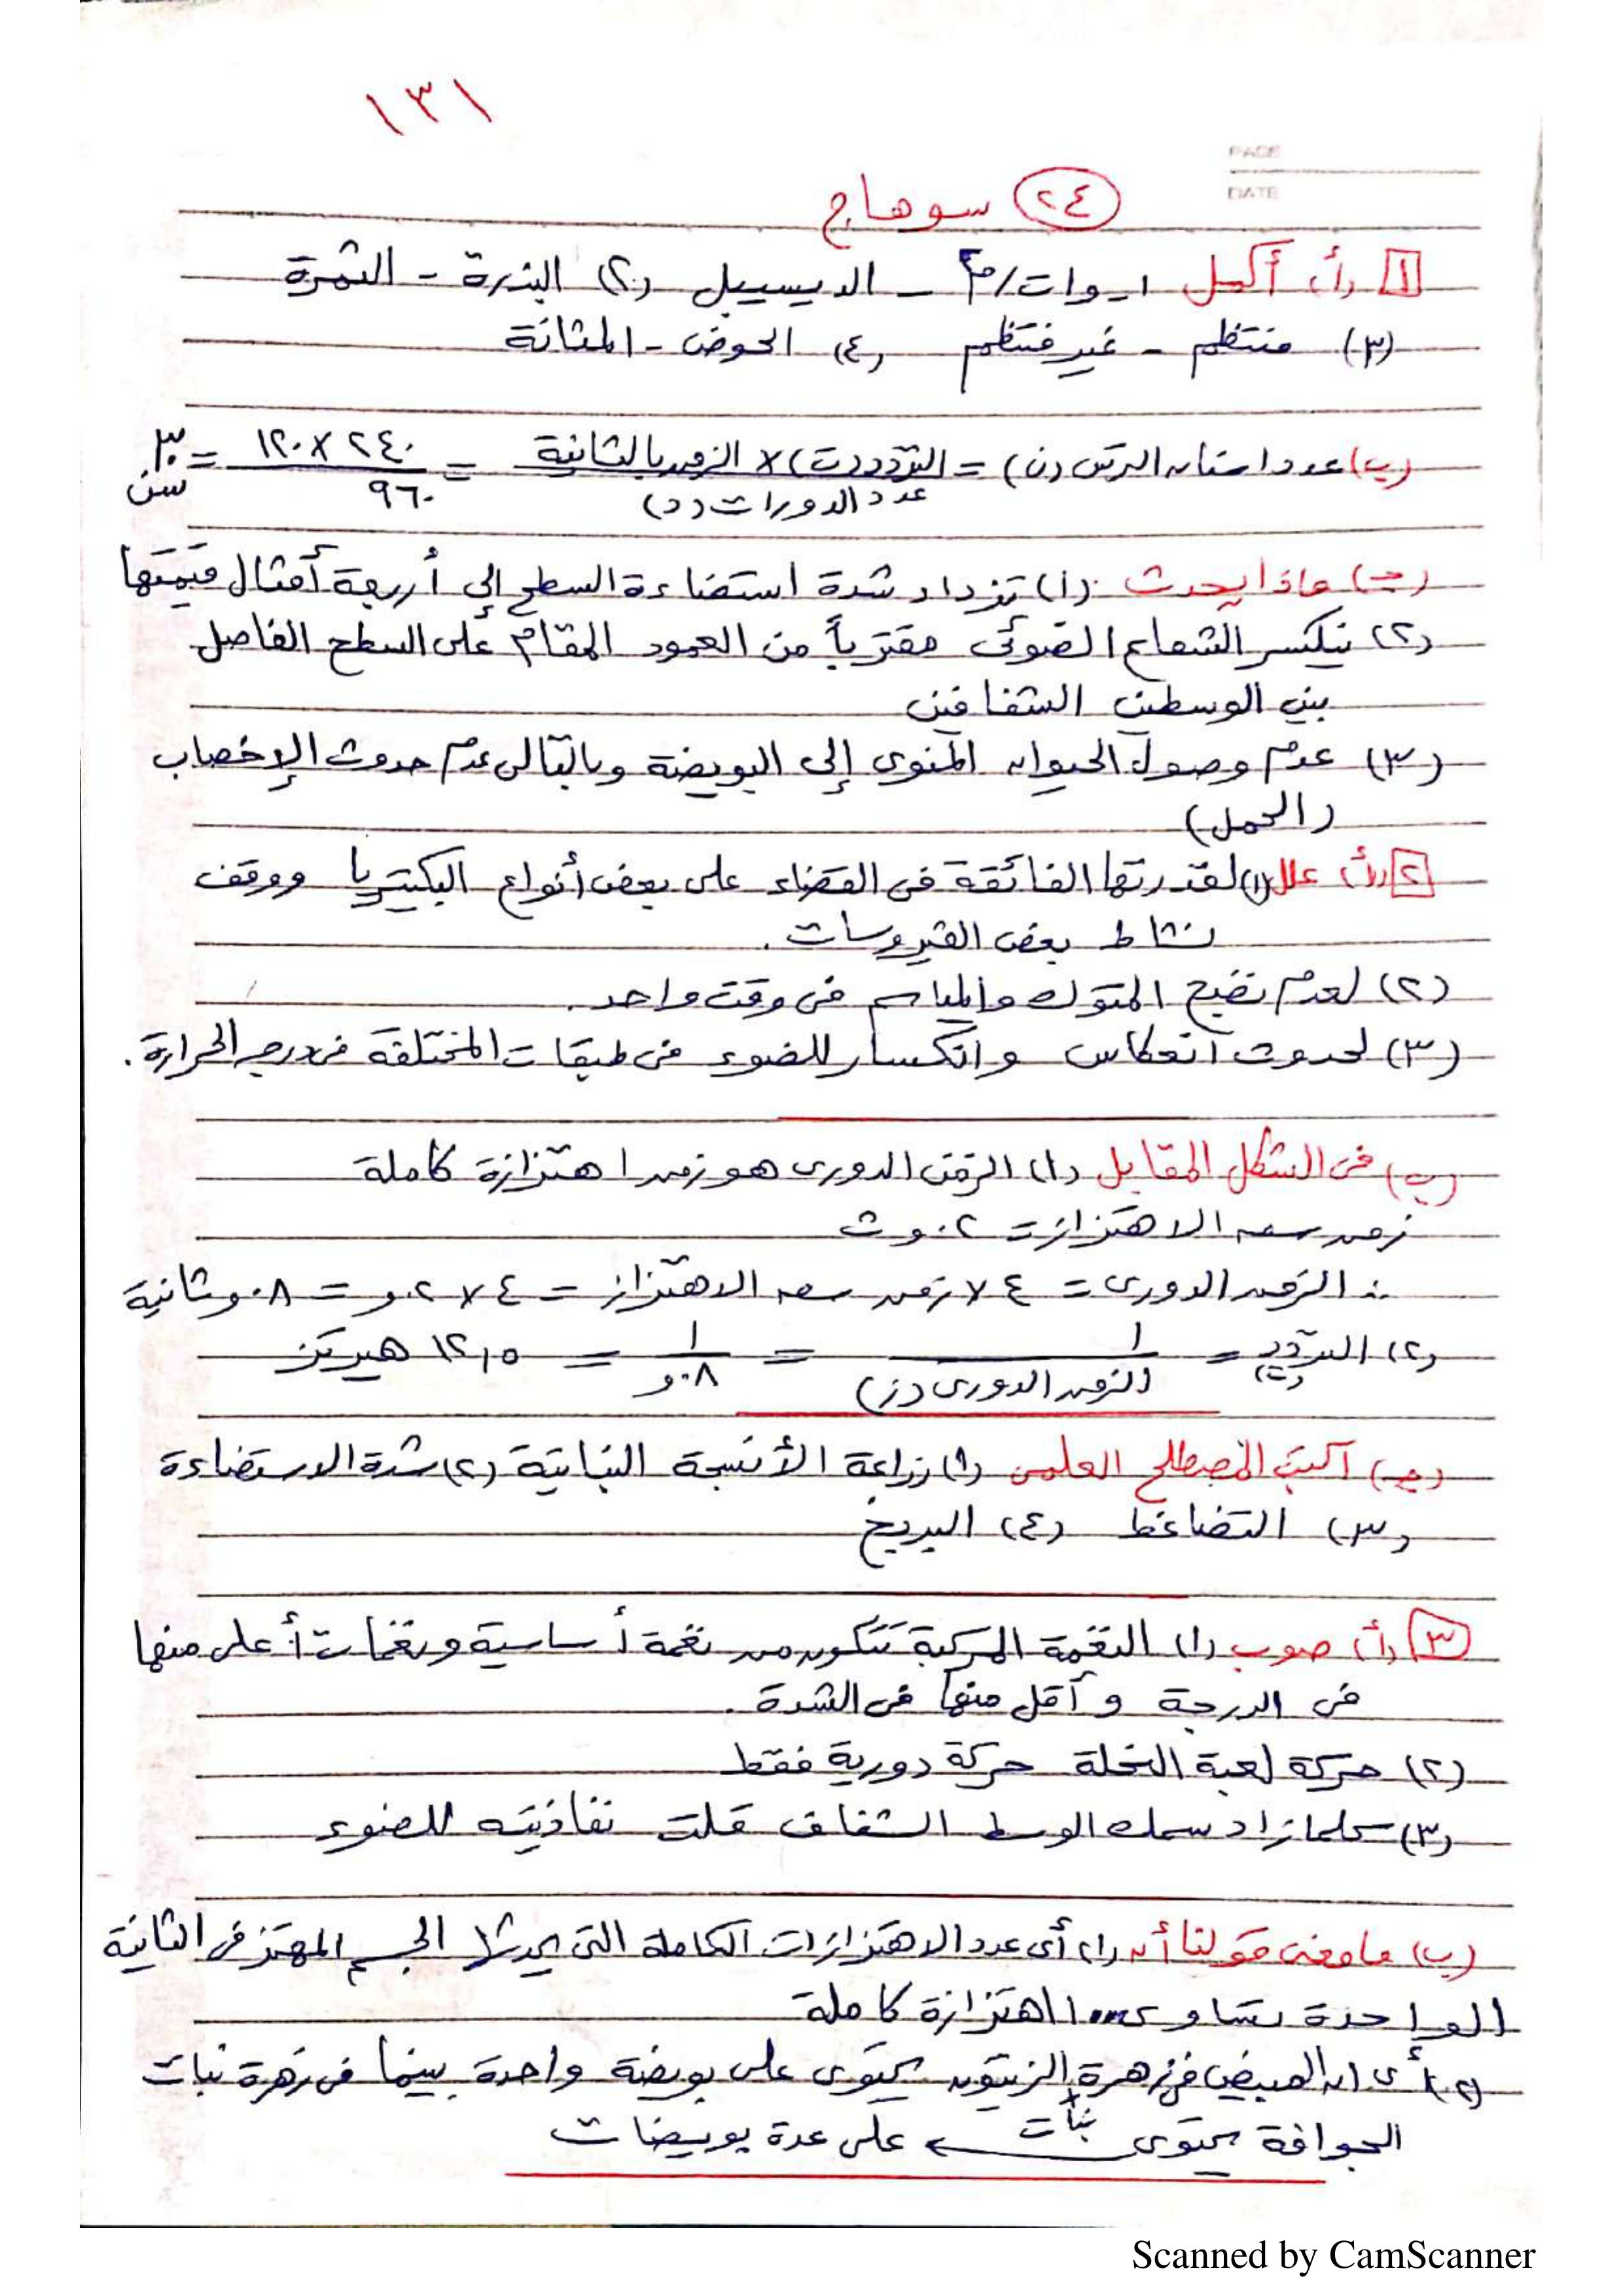 ١٣١
PAGE
DATE
٢٤ سوهاج
١ (أ) أكمل ١- وات/م٢ - الديسيبل (٢) البذرة - الثمرة
(٣) منتظم - غير منتظم (٤) الحوض - المثانة
(ب) عدد أسنان الترس (ن) = التردد (ت) × الزمن بالثانية / عدد الدورات (د) = ٢٤٠ × ١٢٠ / ٩٦٠ = ٣٠ سن
(جـ) ماذا يحدث (١) تزداد شدة استضاءة السطح إلى أربعة أمثال قيمتها
(٢) ينكسر الشعاع الضوئى مقترباً من العمود المقام على السطح الفاصل
بين الوسطين الشفافين
(٣) عدم وصول الحيوان المنوى إلى البويضة وبالتالى عدم حدوث الإخصاب
(الحمل)
٢ (أ) علل (١) لقدرتها الفائقة فى القضاء على بعض أنواع البكتيريا ووقف
نشاط بعض الفيروسات.
(٢) لعدم نضج المتوك والمياسم فى وقت واحد.
(٣) لحدوث انعكاس وانكسار للضوء فى طبقات المختلفة فى درجه الحرارة.
(ب) فى الشكل المقابل (١) الزمن الدورى هو زمن اهتزازة كاملة
زمن سعه الاهتزازة = ٠٢,و ث
∴ الزمن الدورى = ٤ × زمن سعه الاهتزاز = ٤ × ٠٢,و = ٠٨,و ثانية
(٢) التردد (ت) = ١ / الزمن الدورى (ز) = ١ / ٠٨,و = ١٢,٥ هيرتز
(جـ) اكتب المصطلح العلمى (١) زراعة الأنسجة النباتية (٢) شدة الاستضاءة
(٣) التضاغط (٤) البربخ
٣ (أ) صوب (١) النغمة المركبة تتكون من نغمة أساسية ونغمات أعلى منها
فى الدرجة وأقل منها فى الشدة.
(٢) حركة لعبة النحلة حركة دورية فقط
(٣) كلما زاد سمك الوسط الشفاف قلت نفاذيته للضوء
(ب) ما معنى قولنا أن (١) أى عدد الاهتزازات الكاملة التى يحدثها الجسم المهتز فى الثانية
الواحدة تساوى ١٠٠٠ اهتزازة كاملة
(٢) أى ان المبيض فى زهرة الزيتون يحتوى على بويضة واحدة بينما فى زهرة نبات
الجوافة يحتوى على عدة بويضات
نبات
Scanned by CamScanner